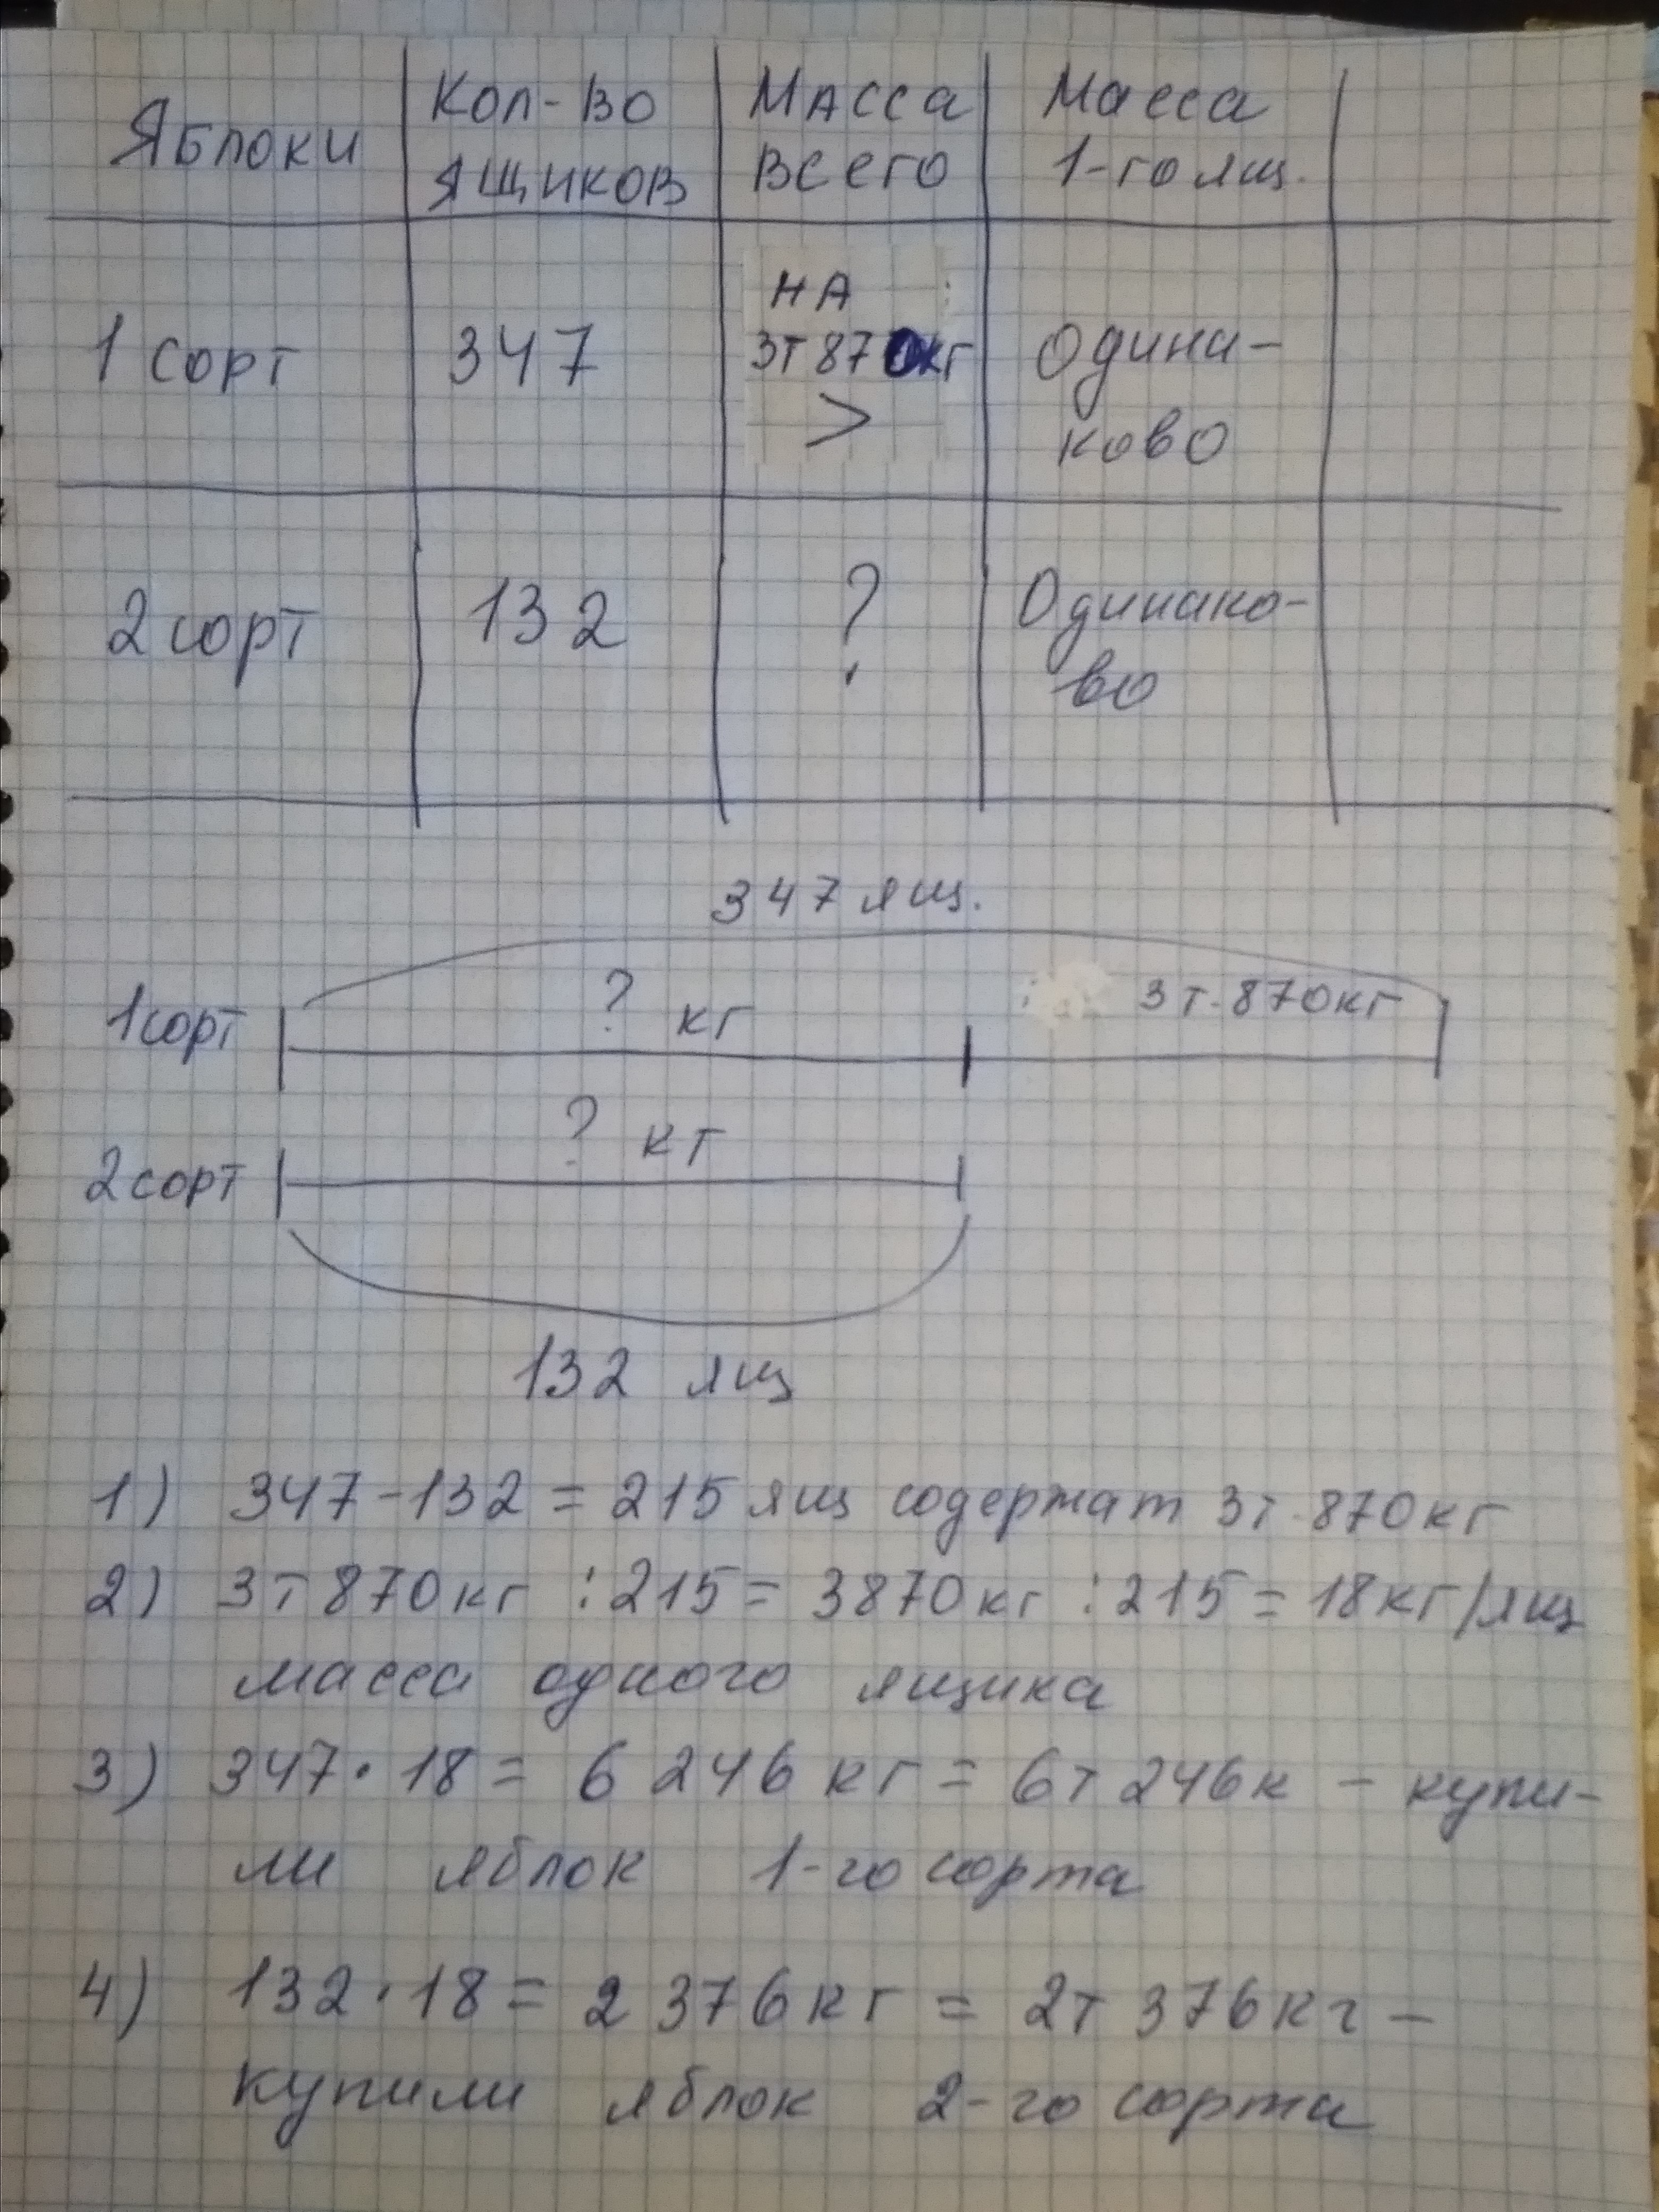 Яблоки Кол-во ящиков Масса всего Масса 1-го ящ.
1 сорт 347 на 3т 870кг > Одина-ково
2 сорт 132 ? Одинако-во
347 ящ.
1 сорт ? кг 3т. 870кг
2 сорт ? кг
132 ящ
1) 347-132 = 215 ящ содержат 3т. 870кг
2) 3т 870кг : 215 = 3870кг : 215 = 18кг/ящ
масса одного ящика
3) 347·18 = 6 246 кг = 6т 246к - купи-
ли яблок 1-го сорта
4) 132·18 = 2 376кг = 2т 376кг -
купили яблок 2-го сорта